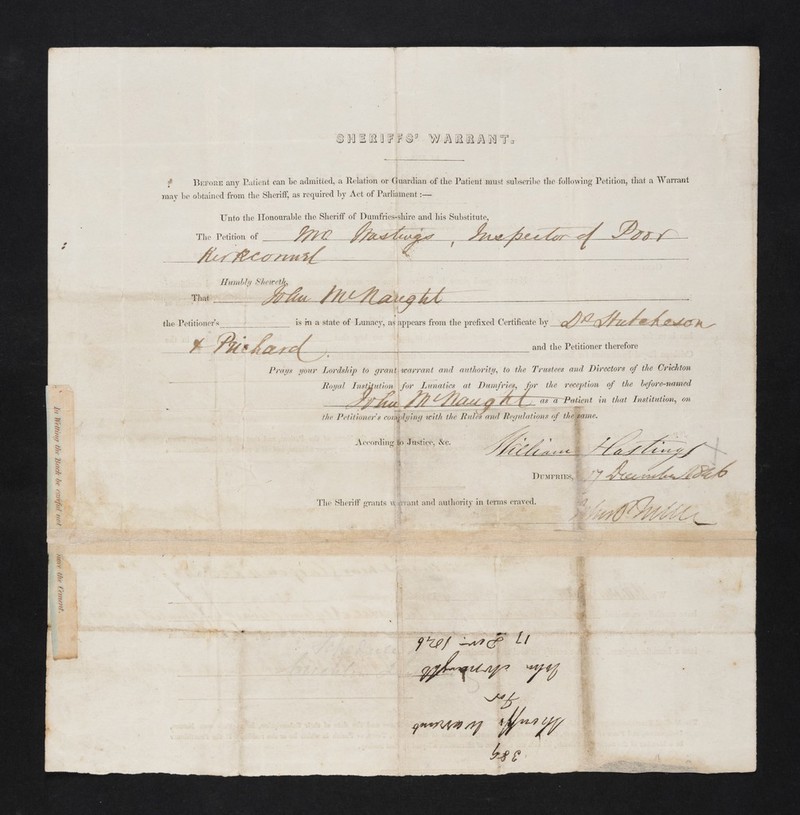 SHERIFFS' WARRANT.
BEFORE any Patient can be admitted, a Relation or Guardian of the Patient must subscribe the following Petition, that a Warrant
may be obtained from the Sheriff, as required by Act of Parliament:—
Unto the Honourable the Sheriff of Dumfries-shire and his Substitute,
The Petition of Hastings, Inspector of Poor
Kirkconnel
Humbly Sheweth,
That John McNaught
the Petitioner's is in a state of Lunacy, as appears from the prefixed Certificate by Drs Hutcheson
& Prichard and the Petitioner therefore
Prays your Lordship to grant warrant and authority, to the Trustees and Directors of the Crichton
Royal Institution for Lunatics at Dumfries, for the reception of the before-named
John McNaught as a Patient in that Institution, on
the Petitioner's complying with the Rules and Regulations of the same.
According to Justice, &c. William Hastings
DUMFRIES, 17 December 1846
The Sheriff grants warrant and authority in terms craved.
In Wetting the Back be careful not to remove the Cement.
389
Sheriffs Warrant
For
John McNaught
17 Decr 1846